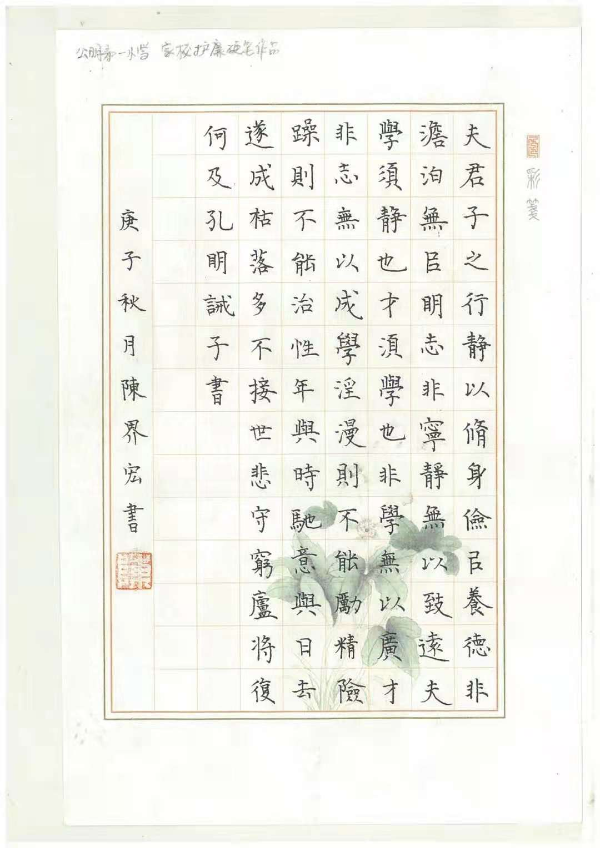 公明第一小学 家校护廉硬笔作品
彩箋
夫君子之行静以脩身儉㠯養德非
澹泊無㠯明志非寧静無以致遠夫
學須静也才須學也非學無以廣才
非志無以成學淫漫則不能勵精險
躁則不能治性年與時馳意與日去
遂成枯落多不接世悲守窮廬將復
何及孔明誡子書
庚子秋月陳界宏書